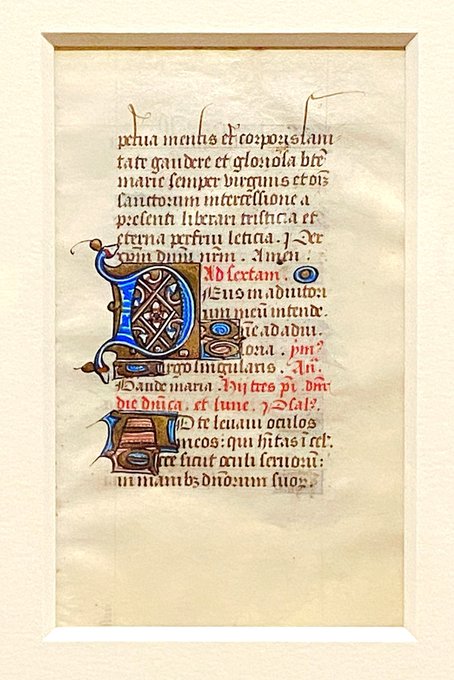 petua mentis et corporis sani
tate gaudere et gloriosa bte
marie semper virginis et oim
sanctorum intercessione a
presenti liberari tristicia et
eterna perfrui leticia. Per
xpm dnm nrm. Amen.
Ad sextam.
Deus in adiutori
um meu intende.
Dne ad adiu.
Gloria. ymˢ
Virgo singularis. An.
Gaude maria. Hii tres pˢ. dnr
die dnica. et lune. Psalˢ.
AD te levavi oculos
meos: qui hitas i cel'.
Ecce sicut oculi servorū:
in manibꝫ dnorum suoꝝ.